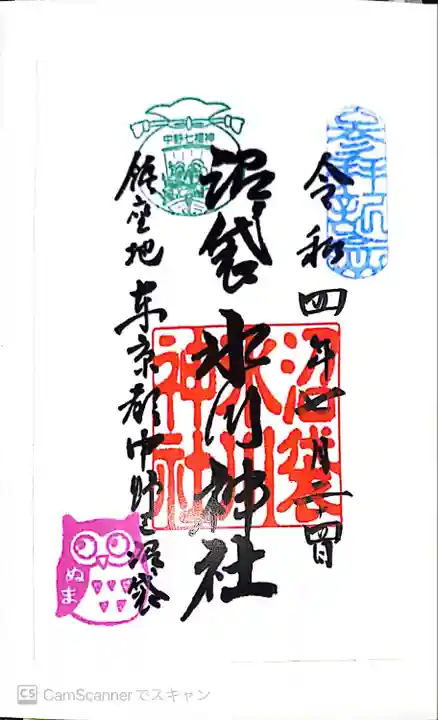 参拝祈念
令和四年七月二十四日
沼袋氷川神社
沼袋
氷川
神社
中野七福神
鎮座地 東京都中野区沼袋
ぬま
CS CamScannerでスキャン